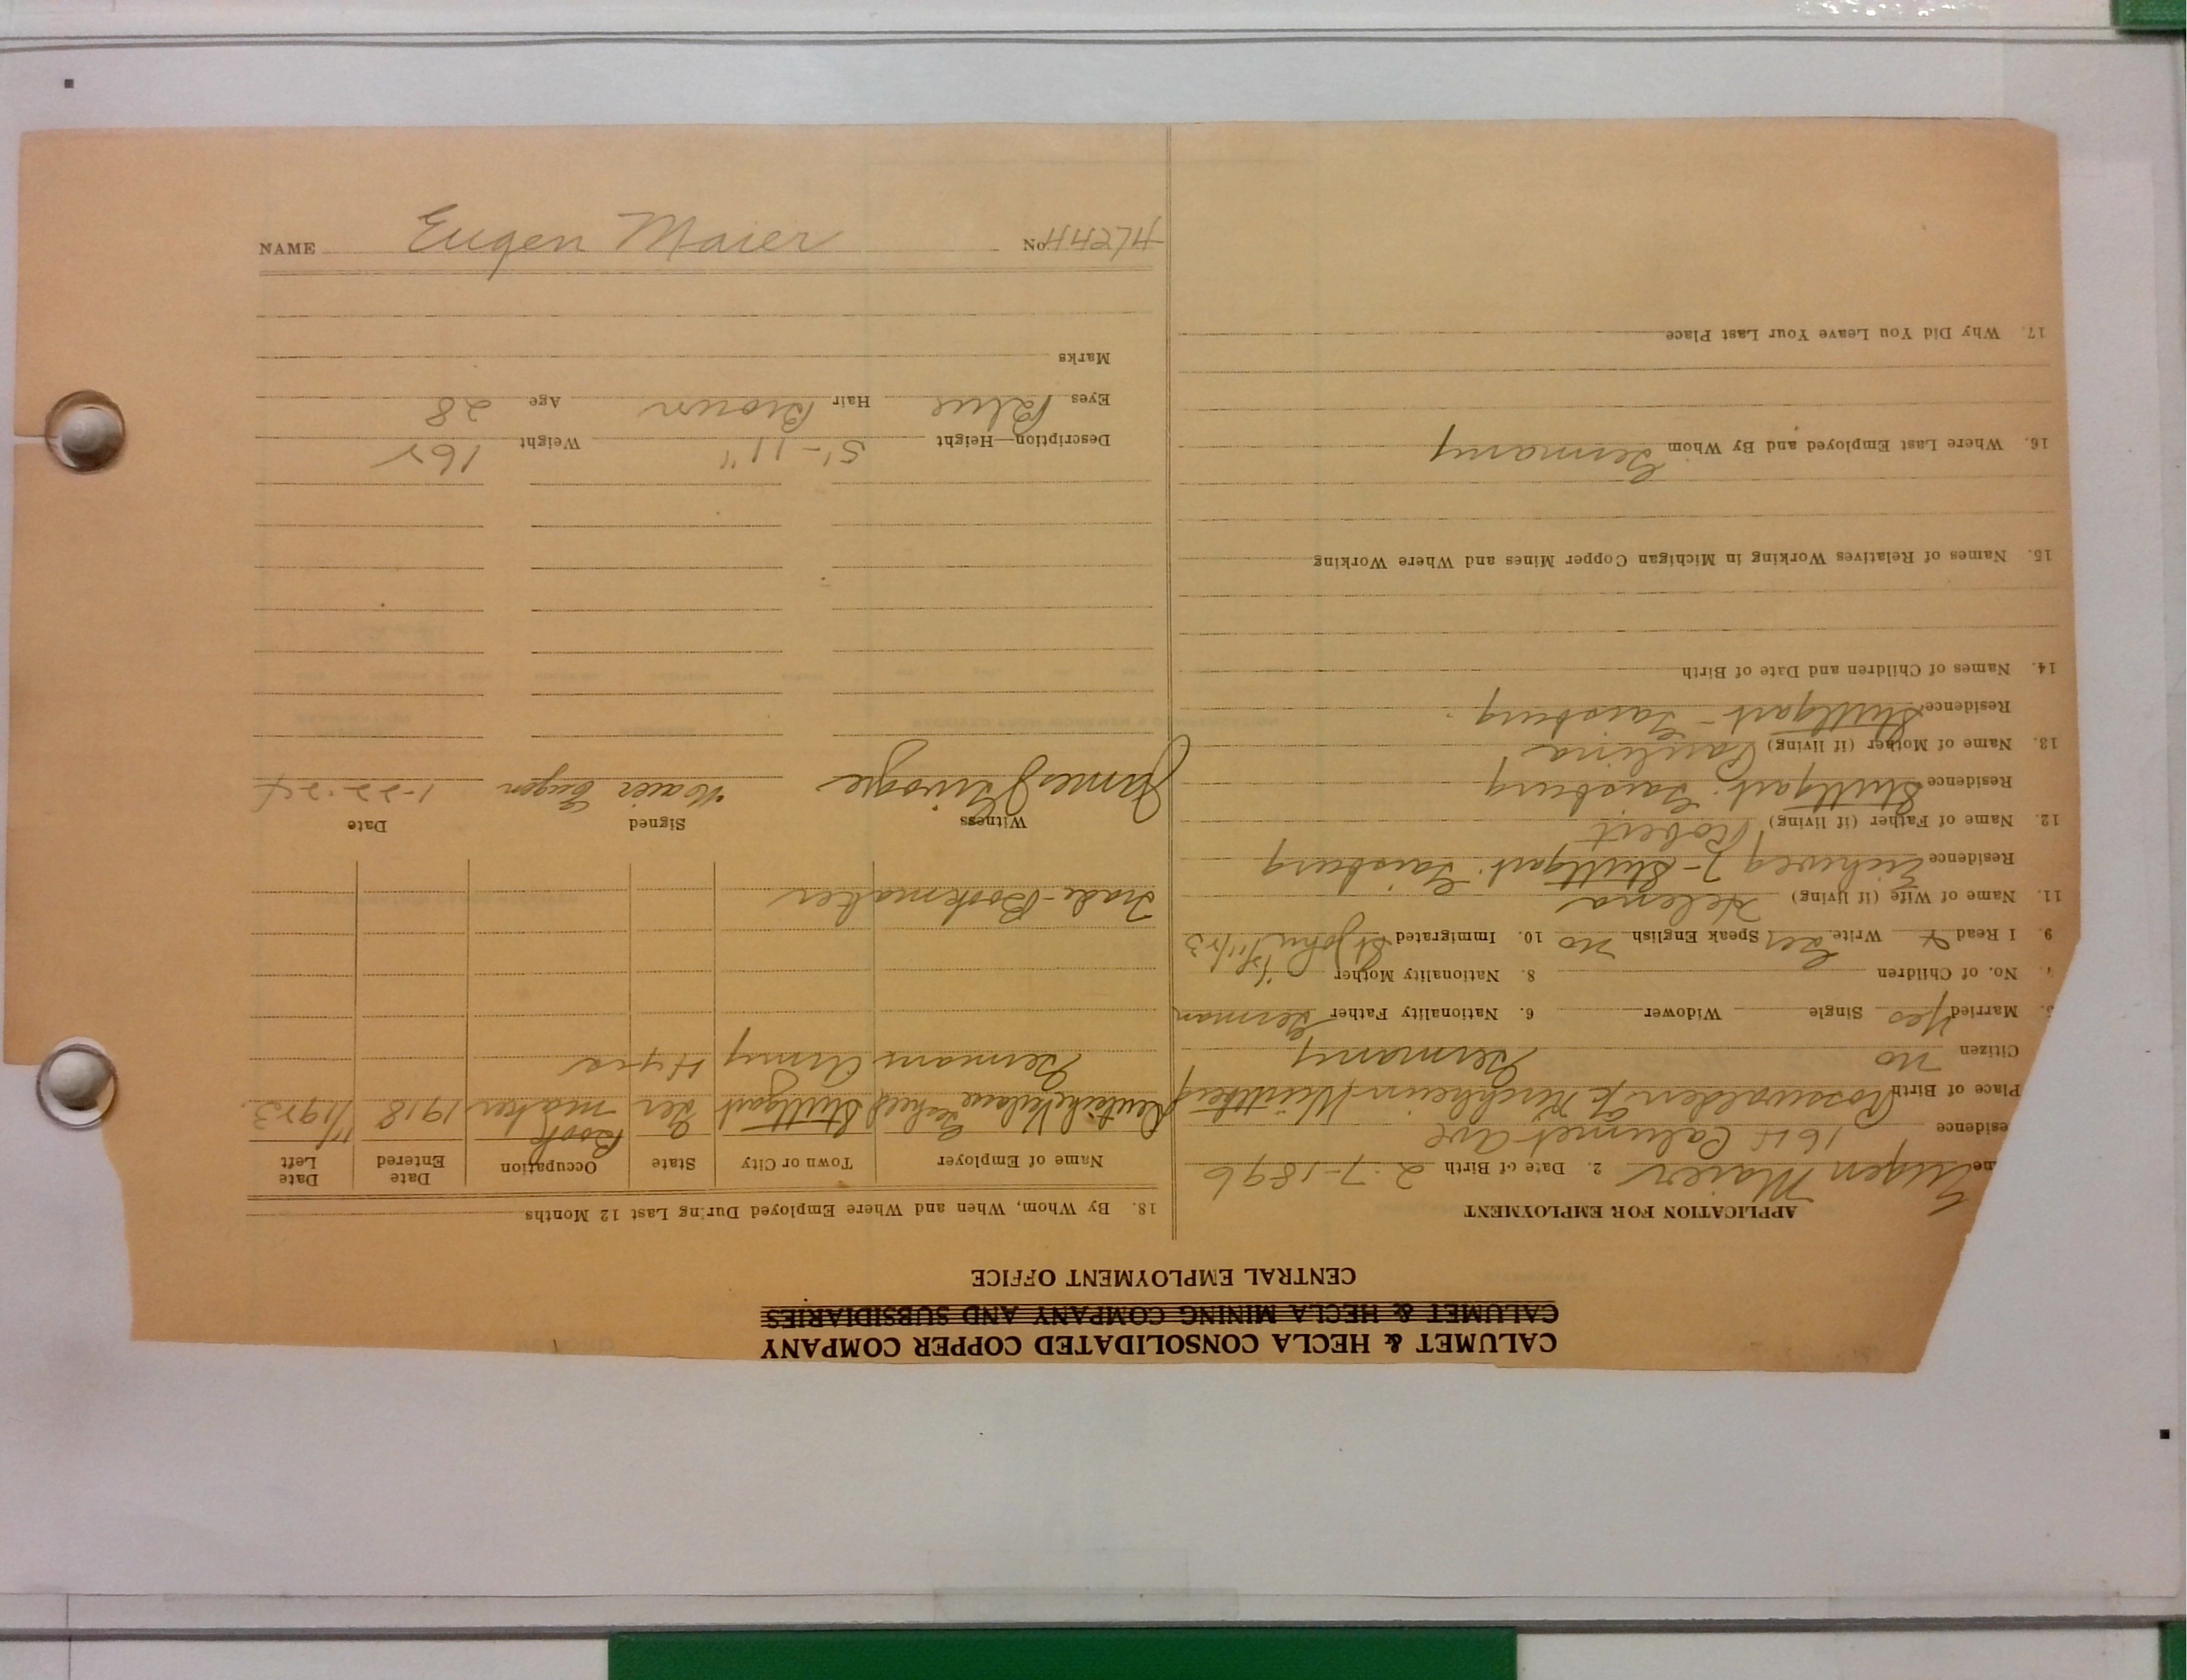 CALUMET & HECLA CONSOLIDATED COPPER COMPANY
CALUMET & HECLA MINING COMPANY AND SUBSIDIARIES
CENTRAL EMPLOYMENT OFFICE
APPLICATION FOR EMPLOYMENT
me Eugen Maier 2. Date of Birth 2-7-1896
esidence 1614 Calumet Ave
Place of Birth Rosswalden Kirchheim Württberg
Citizen no Germany
Married yes Single Widower 6. Nationality Father German
No. of Children 8. Nationality Mother "
9. I Read & Write Ger Speak English no 10. Immigrated St John
11. Name of Wife (if living) Helena
Residence 7 - Stuttgart. Gaisburg
12. Name of Father (if living) Robert
Residence Stuttgart. Gaisburg
13. Name of Mother (if living) Paulina
Residence Stuttgart - Gaisburg
14. Names of Children and Date of Birth
15. Names of Relatives Working in Michigan Copper Mines and Where Working
16. Where Last Employed and By Whom Germany
17. Why Did You Leave Your Last Place
18. By Whom, When and Where Employed During Last 12 Months
Name of Employer Town or City State Occupation Date Entered Date Left
Deutsche Stuttgart Ger Book maker 1918 11/1923
Germans Army 4 yrs
Trade - Bookmaker
Witness Signed Date
James Maier Eugen 1-22-24
Description—Height 5'-11" Weight 165
Eyes Blue Hair Brown Age 28
Marks
NAME Eugen Maier No. 44274